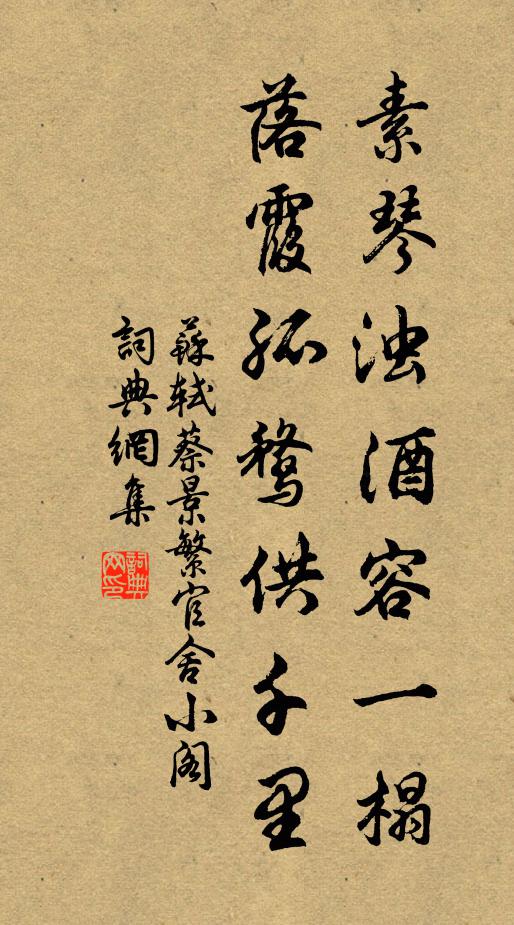 素琴浊酒容一榻
落霞孤鹜供千里
蘇軾蔡景繁官舍小阁
詞典網集
詞典網印